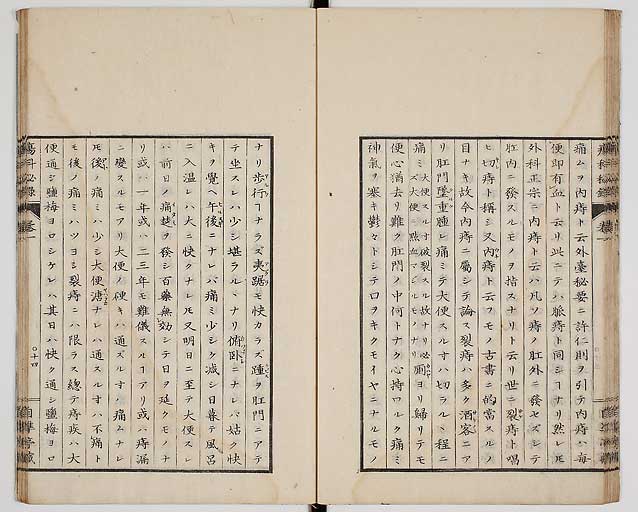 痛ムヲ内痔ト云外臺秘要ニ許仁則ヲ引テ内痔ハ毎
便即有血ト云リ此ニテハ脈痔ト同シコナリ然レモ
外科正宗ニ内痔ト云ハ凡ソ痔ノ肛外ニ發セズシテ
肛内ニ發スルモノヲ指スナリト云リ世ニ裂痔ト唱
ヒ切痔ト稱シ又内痔ト云フモノ古書ニ的當スルノ
目ナキ故今内痔ニ屬シテ論ス裂痔ハ多ク酒客ニア
リ肛門墜重腫レ痛ミテ大便スルオハ切ラルヽ程ニ
痛ミ
便心猶去リ難ク肛門ノ中何トナク心持ワルク痛ミ
神氣ヲ塞キ鬱々トシテ口ヲキクモイヤニナルモノ
ナリ歩行コナラズ夷踞モ快カラズ踵ヲ肛門ニアテ
テ坐スレハ少シ堪ラルヽナリ俯臥ニナレバ姑ク快
キヲ覺ヘ午後ニナレバ痛ミ少シク減シ日暮テ風呂
ニ入温レハ大ニ快クナレモ又明日ニ至テ大便スレ
ハ前日ノ痛楚ヲ發シ百藥無効シテ日ヲ延クモノナ
リ或ハ一年或ハ二三年モ難儀スルコアリ或ハ痔漏
ニ變スルモアリ大便ノ硬キハ通ズルオハ痛ムナレ
モ後ノ痛ミハ少シ大便溏ナレハ通スルオハ不痛ト
モ後ノ痛ミハツヨシ裂痔ニハ限ラス總テ痔疾ハ大
便通シ鹽梅ヨロシケレハ其日ハ快ク通シ鹽梅ヨロ
瘍科秘録
卷一
〇十四